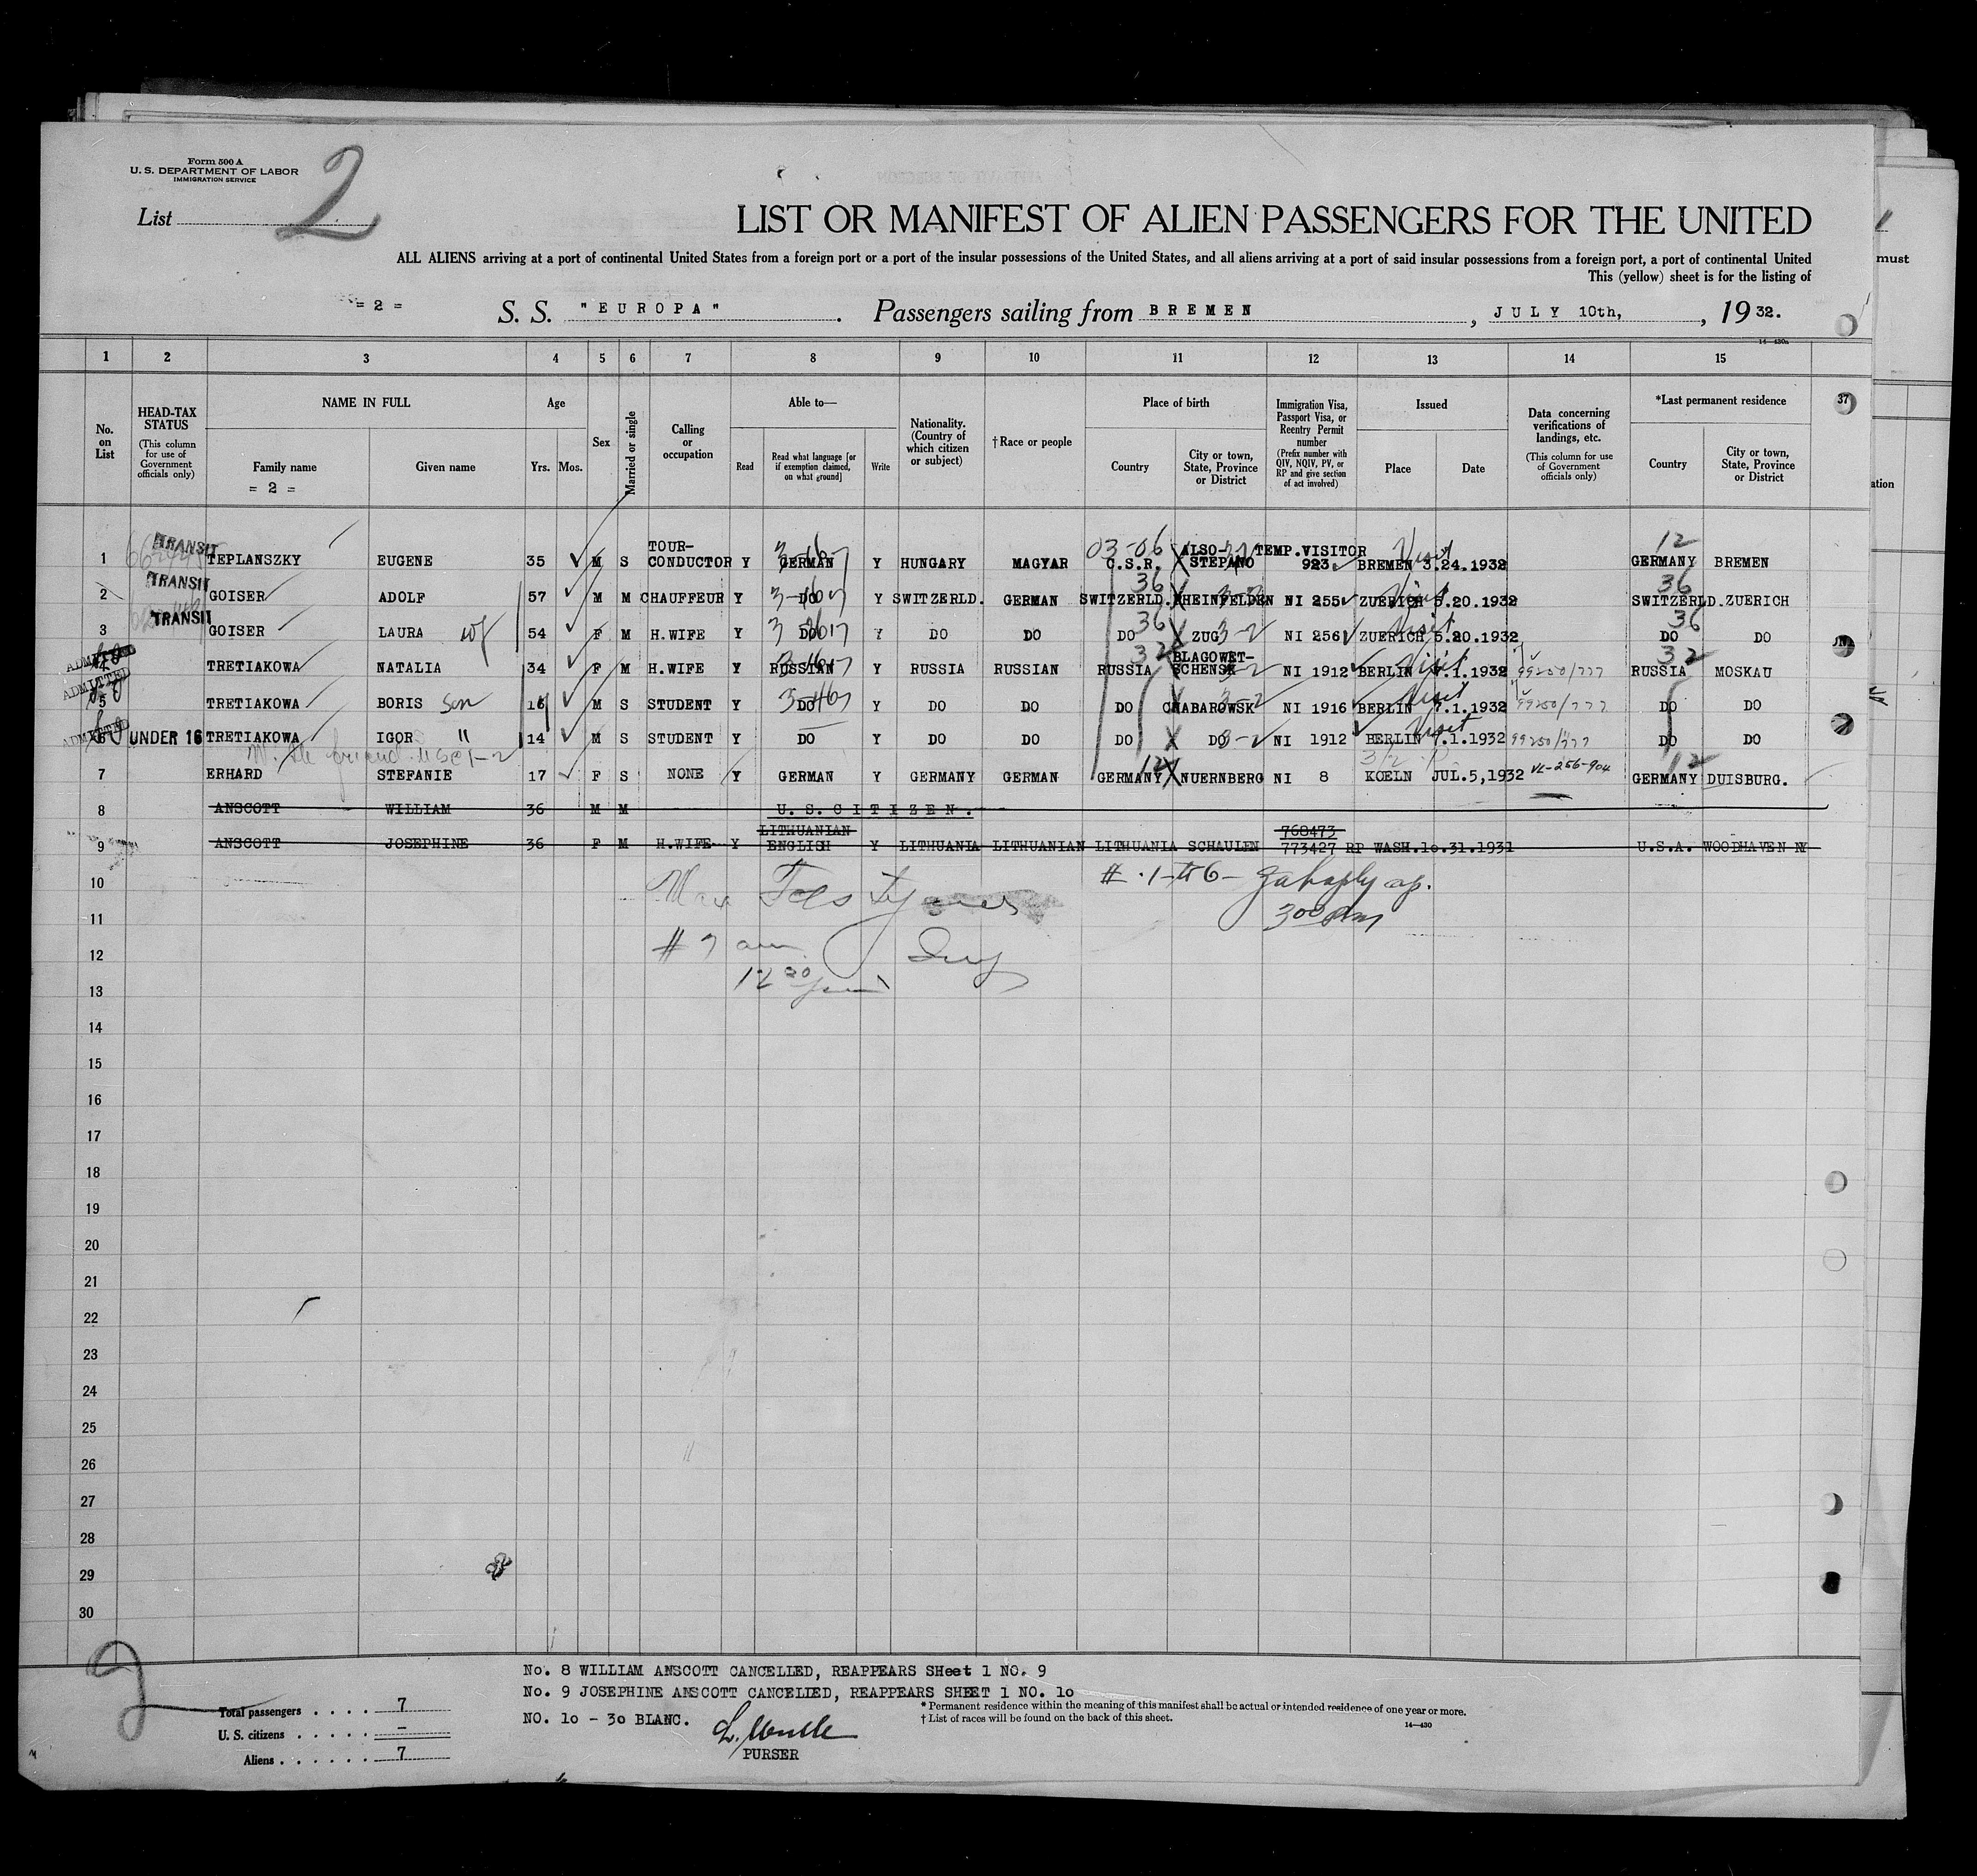 Form 500 A
U. S. DEPARTMENT OF LABOR
IMMIGRATION SERVICE
List 2
LIST OR MANIFEST OF ALIEN PASSENGERS FOR THE UNITED
ALL ALIENS arriving at a port of continental United States from a foreign port or a port of the insular possessions of the United States, and all aliens arriving at a port of said insular possessions from a foreign port, a port of continental United
must
This (yellow) sheet is for the listing of
= 2 = S. S. "EUROPA". Passengers sailing from BREMEN, JULY 10th, , 19 32.
14—430a
1 2 3 4 5 6 7 8 9 10 11 12 13 14 15
No. on List
HEAD-TAX STATUS
(This column for use of Government officials only)
NAME IN FULL
Family name
= 2 =
Given name
Age
Yrs. Mos.
Sex
Married or single
Calling or occupation
Able to—
Read
Read what language [or if exemption claimed, on what ground]
Write
Nationality. (Country of which citizen or subject)
† Race or people
Place of birth
Country
City or town, State, Province or District
Immigration Visa, Passport Visa, or Reentry Permit number
(Prefix number with QIV, NQIV, PV, or RP and give section of act involved)
Issued
Place
Date
Data concerning verifications of landings, etc.
(This column for use of Government officials only)
*Last permanent residence
Country
City or town, State, Province or District
37
ation
1 TRANSIT TEPLANSZKY EUGENE 35 M S TOUR-CONDUCTOR Y GERMAN Y HUNGARY MAGYAR 03-06 C.S.R. ALSO-STEPANO TEMP.VISITOR 923 BREMEN 3.24.1932 Visit 12 GERMANY BREMEN
2 TRANSIT GOISER ADOLF 57 M M CHAUFFEUR Y DO Y SWITZERLD. GERMAN 36 SWITZERLD. RHEINFELDEN NI 255 ZUERICH 5.20.1932 Visit 36 SWITZERLD. ZUERICH
3 TRANSIT GOISER LAURA wf 54 F M H.WIFE Y DO Y DO DO 36 DO ZUG 3-2 NI 256 ZUERICH 5.20.1932 Visit 36 DO DO
4 ADMITTED TRETIAKOWA NATALIA 34 F M H.WIFE Y RUSSIAN Y RUSSIA RUSSIAN 32 RUSSIA BLAGOWET-SCHENSK NI 1912 BERLIN 7.1.1932 Visit 99250/777 32 RUSSIA MOSKAU
5 ADMITTED TRETIAKOWA BORIS Son 16 M S STUDENT Y DO Y DO DO DO CHABAROWSK 3-2 NI 1916 BERLIN 7.1.1932 Visit 99250/777 DO DO
6 ADMITTED UNDER 16 TRETIAKOWA IGOR " 14 M S STUDENT Y DO Y DO DO DO DO 3-2 NI 1912 BERLIN 7.1.1932 Visit 99250/777 DO DO
7 ERHARD STEFANIE 17 F S NONE Y GERMAN Y GERMANY GERMAN 12 GERMANY NUERNBERG NI 8 KOELN JUL.5,1932 VL-256-904 12 GERMANY DUISBURG.
8 ANSCOTT WILLIAM 36 M M U.S.CITIZEN.
9 ANSCOTT JOSEPHINE 36 F M H.WIFE Y LITHUANIAN ENGLISH Y LITHUANIA LITHUANIAN LITHUANIA SCHAULEN 768473 773427 RP WASH.10.31.1931 U.S.A. WOODHAVEN NY
10 # 1 to 6
11 300 Pm
12 # 7
13
14
15
16
17
18
19
20
21
22
23
24
25
26
27
28
29
30
2
No. 8 WILLIAM ANSCOTT CANCELLED, REAPPEARS SHeet 1 NO. 9
No. 9 JOSEPHINE ANSCOTT CANCELLED, REAPPEARS SHEET 1 NO. 10
NO. 10 - 30 BLANC.
PURSER
Total passengers . . . . 7
U. S. citizens . . . . . –
Aliens . . . . . . 7
* Permanent residence within the meaning of this manifest shall be actual or intended residence of one year or more.
† List of races will be found on the back of this sheet.
14—430